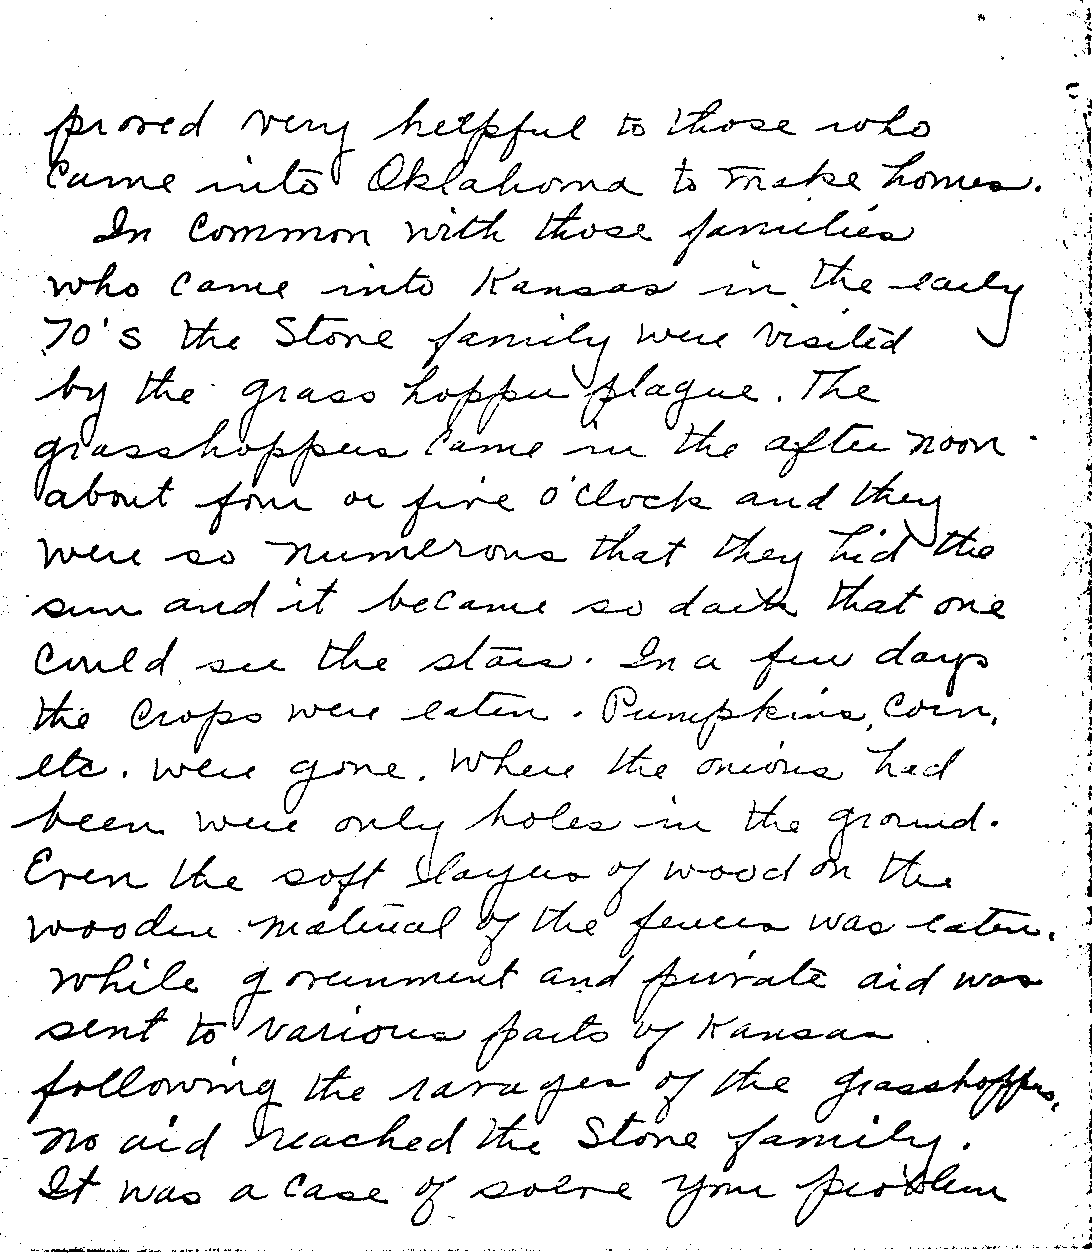 proved very helpful to those who
came into Oklahoma to make homes.
In common with those families
who came into Kansas in the early
70's the Stone family were visited
by the grass hopper plague. The
grasshoppers came in the after noon
about four or five o'clock and they
were so numerous that they hid the
sun and it became so dark that one
could see the stars. In a few days
the crops were eaten. Pumpkins, corn,
etc. were gone. Where the onions had
been were only holes in the ground.
Even the soft layers of wood on the
wooden material of the fences was eaten.
While government and private aid was
sent to various parts of Kansas
following the ravages of the grasshoppers,
no aid reached the Stone family.
It was a case of solve your problem